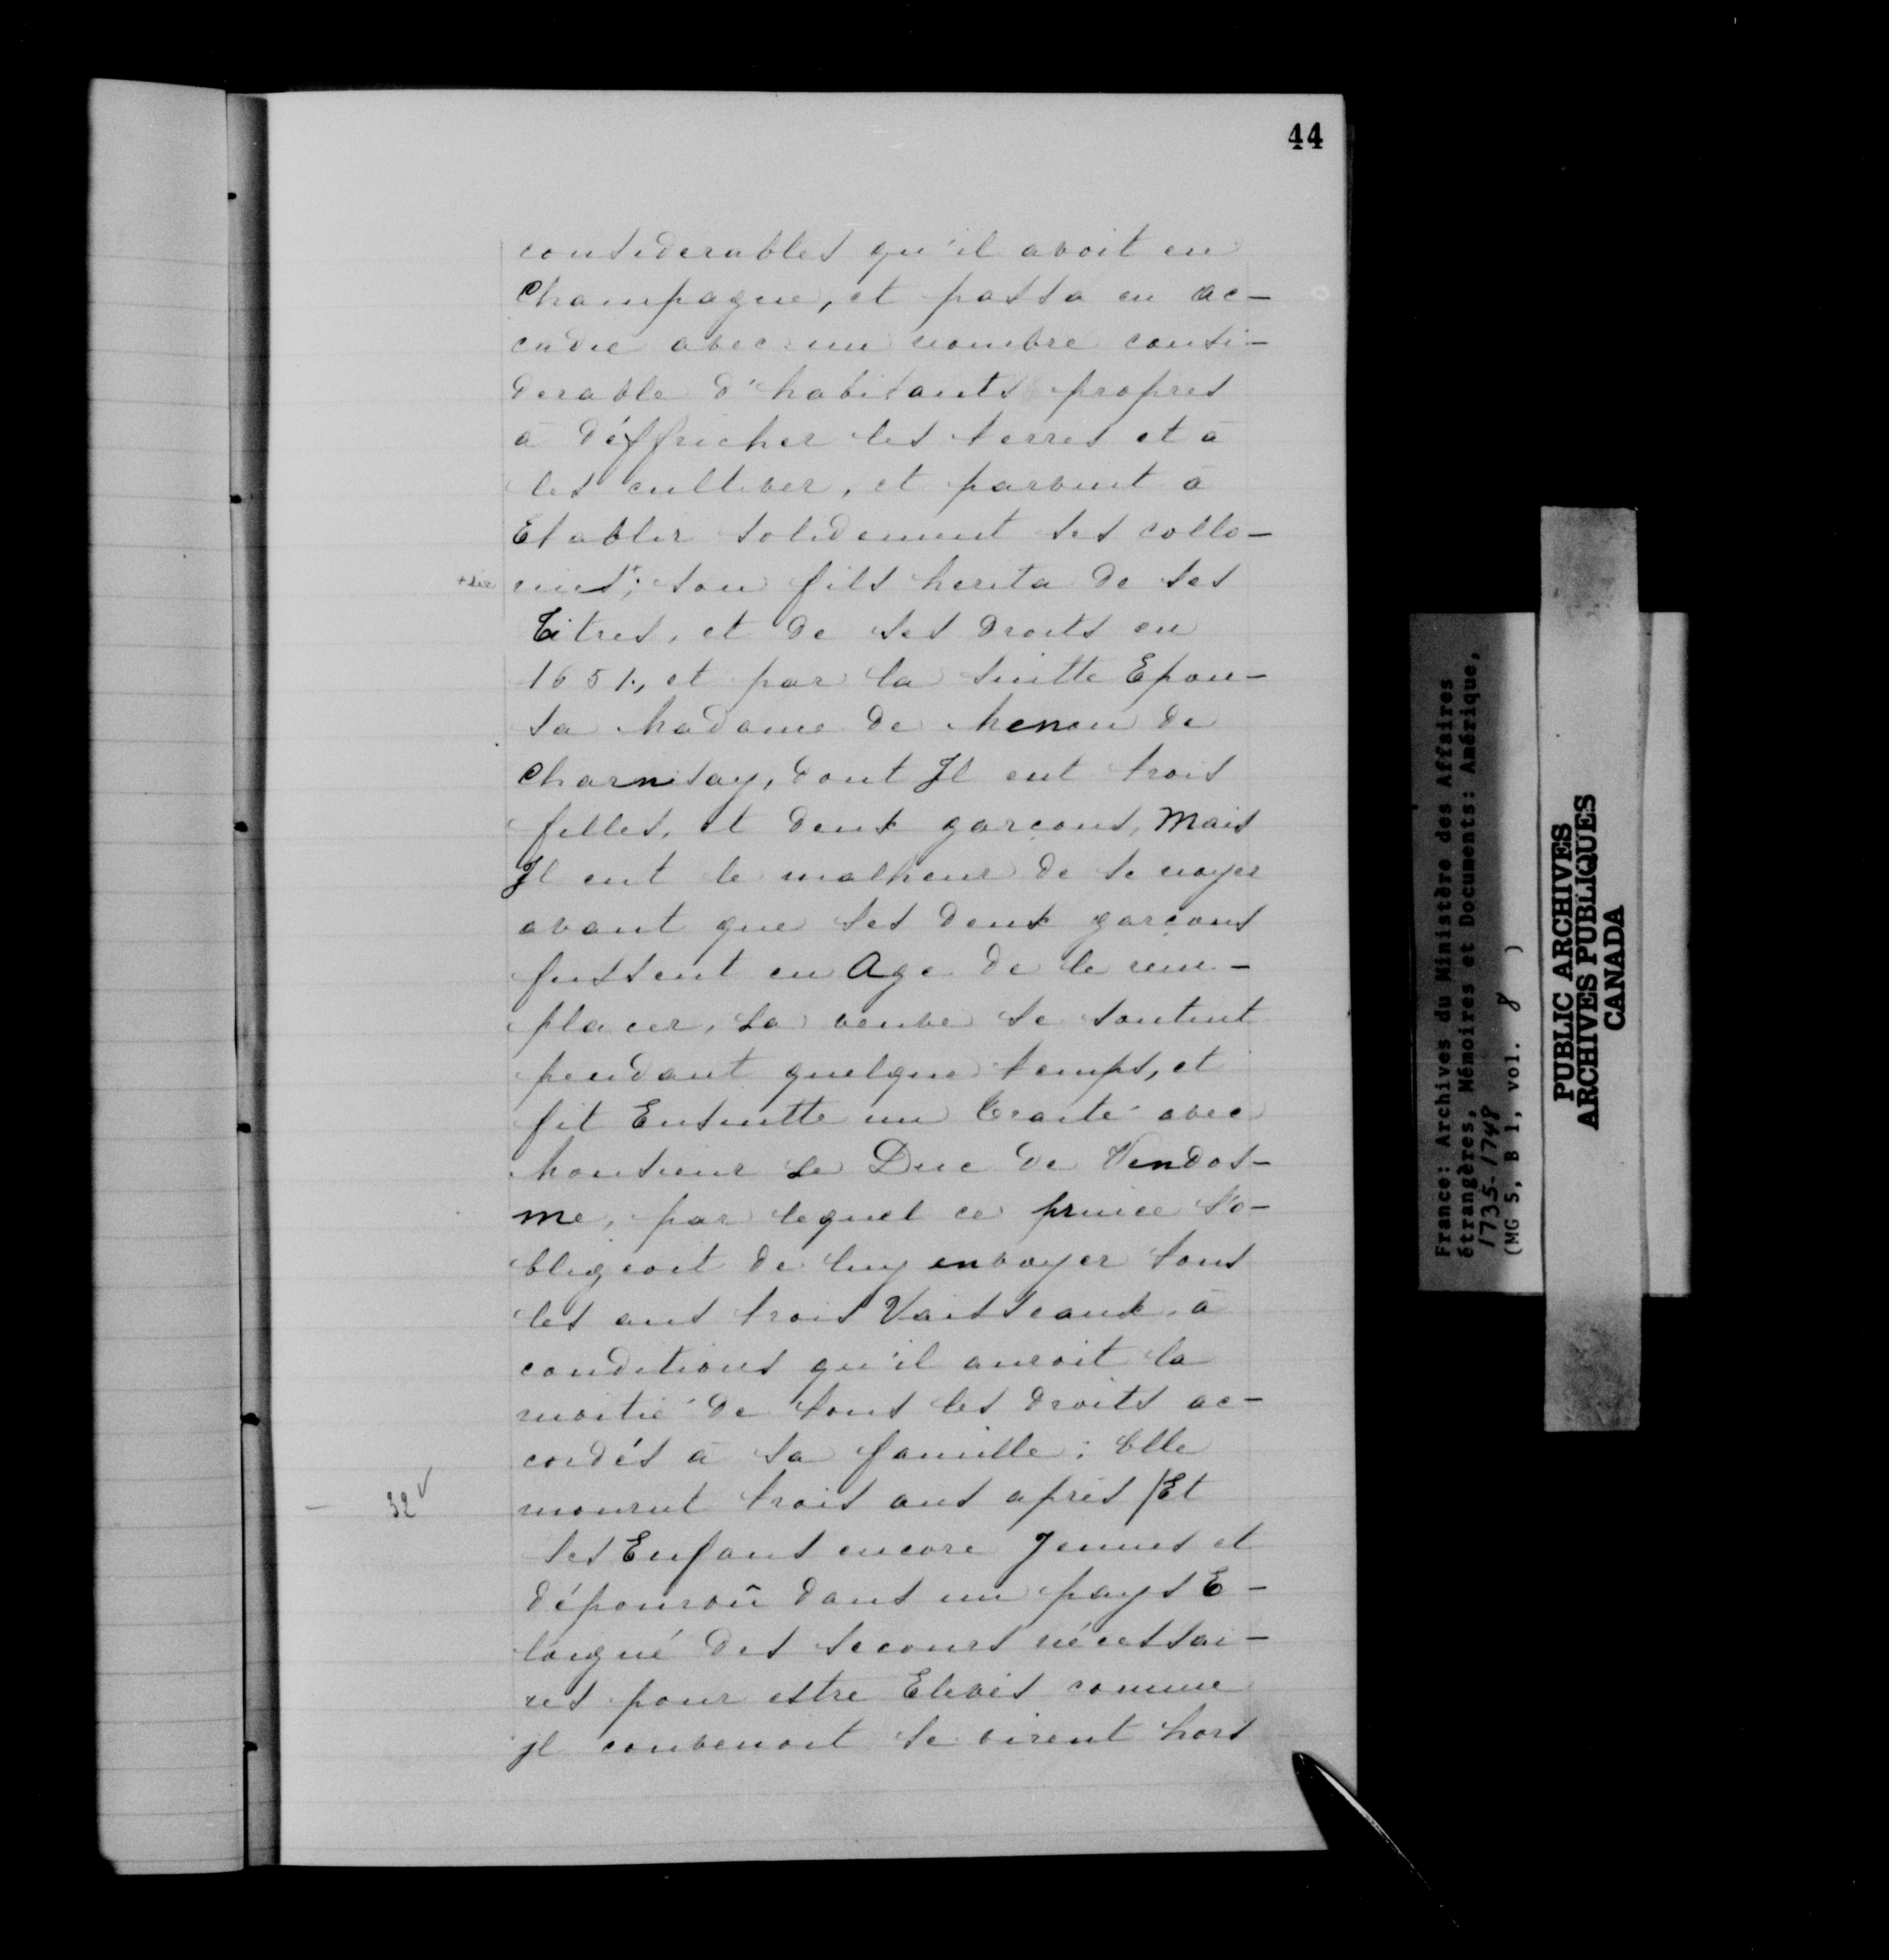 44
considerables qu'il avoit en
Champagne, et passa en ac-
cadie avec un nombre consi-
derable d'habitants propres
à déffricher les terres et à
les cultiver, et parvint à
Etablir solidement ses collo-
nies+; son fils herita de ses
Titres, et de ses droits en
1651, et par la suitte Epou-
sa Madame de Menou de
Charnisay, dont Il eut trois
filles, et deux garçons, Mais
Il eut le malheur de se noyer
avant que ses deux garçons
fussent en Age de le rem-
placer, La veuve se soutint
pendant quelque temps, et
fit Ensuitte un Traité avec
Monsieur Le Duc de Vendos-
me, par lequel ce prince s'o-
bligeoit de luy envoyer tous
les ans trois Vaisseaux, à
conditions qu'il auroit la
moitié de tous les droits ac-
cordés à sa famille; Elle
32v
mourut trois ans après /Et
ses Enfans encore Jeunes et
dépourvû dans un pays E-
loigné des secours nécessai-
res pour estre Elevés comme
Il convenoit se virent hors
France: Archives du Ministère des Affaires
étrangères, Mémoires et Documents: Amérique,
1735-1748
(MG 5, B 1, vol. 8 )
PUBLIC ARCHIVES
ARCHIVES PUBLIQUES
CANADA